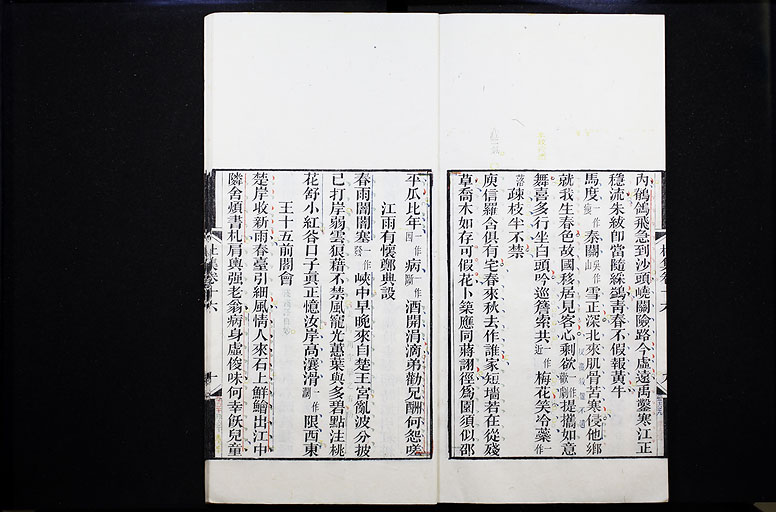 內鶺鴒飛急到沙頭嶢關險路今虛遠禹鑿寒江正
穩流朱紱卽當隨綵鷁靑春不假報黃牛
馬度一作瘦秦關吳作山雪正深北來肌骨苦寒侵他鄉
就我生春色故國移居見客心剩欲提攜如意
舞喜多行坐白頭吟巡簷索共一作近梅花笑冷蘂一作
落疎枝半不禁
庾信羅含俱有宅春來秋去作誰家短墻若在從殘
草喬木如存可假花卜築應同蔣詡徑爲園須似邵
平瓜比年一作因病酒開涓滴弟勸兄酬何怨嗟
江雨有懷鄭典設
春雨闇闇塞一作發峽中早晚來自楚王宮亂波分披
已打岸弱雲狼藉不禁風寵光蕙葉與多碧點注桃
花舒小紅谷口子眞正憶汝岸高瀼滑一作闊限西東
王十五前閣會
楚岸收新雨春臺引細風情人來石上鮮鱠出江中
隣舍煩書札肩輿强老翁病身虛俊味何幸飫兒童